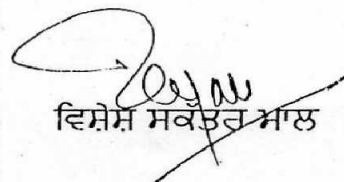 ਵਿਸ਼ੇਸ਼ ਸਕੱਤਰ ਮਾਲ